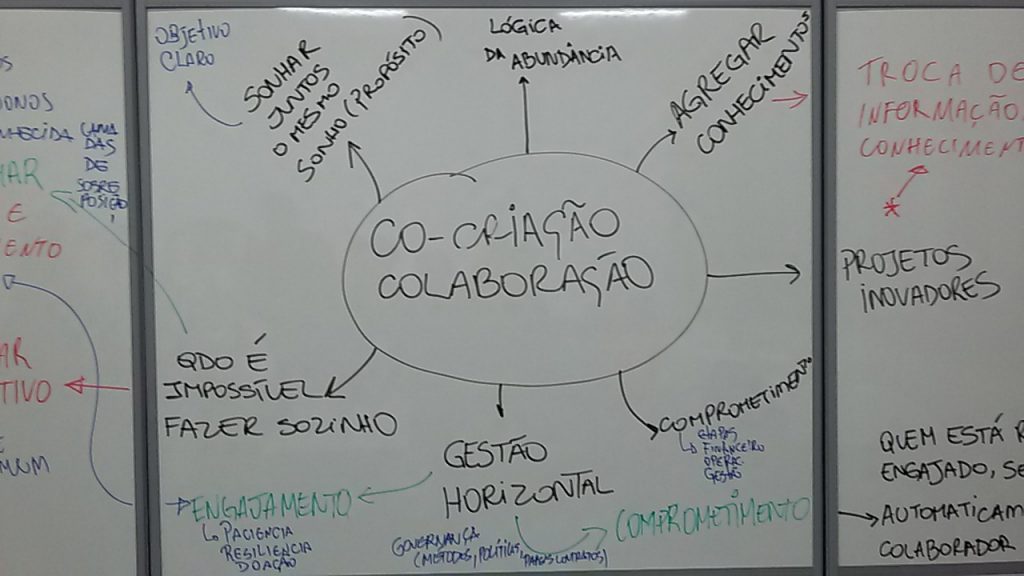 DONOS
CAMA
DAS
DE
SOBRE
POSIÇÃO
E
OBJETIVO
CLARO
SONHAR
JUNTOS
O MESMO
SONHO (PROPÓSITO)
LÓGICA
DA ABUNDÂNCIA
AGREGAR
CONHECIMENTOS
CO-CRIAÇÃO
COLABORAÇÃO
QDO É
IMPOSSÍVEL
FAZER SOZINHO
GESTÃO
HORIZONTAL
COMPROMETIMENTO
FINANCEIRO
OPERAC.
GESTÃO
ENGAJAMENTO
PACIENCIA
RESILIENCIA
DOAÇÃO
GOVERNANÇA
(METODOS, POLÍTICAS,
COMPROMETIMENTO
TROCA DE
INFORMAÇÃO
CONHECIMENT
*
PROJETOS
INOVADORES
QUEM ESTÁ R
ENGAJADO, SE
AUTOMATICAM
COLABORADOR